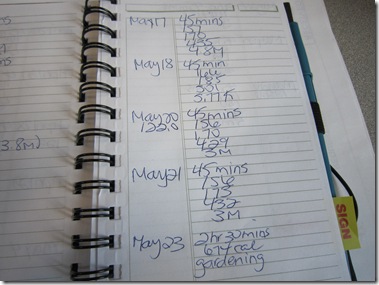 May 17 45 mins
170
4.8M
May 18 45 min
185
May 20 45 mins
122.0 156
170
429
3M
May 21 45 mins
156
173
432
3M.
May 23 2 hr 32 mins
674 cal
gardening
3.8M)
SIGN